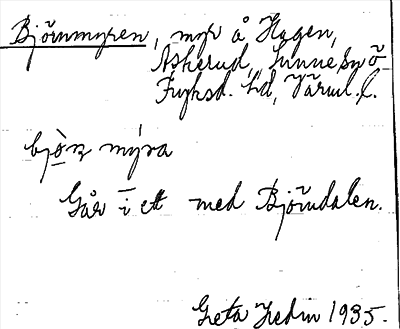 Björnmyren, myr å Hagen,
Askerud, Sunne sn Ö
Fryksd. hd, Värml. l.
bjò̱n̥ mýra
Går i ett med Björndalen.
Greta Hedin 1935.